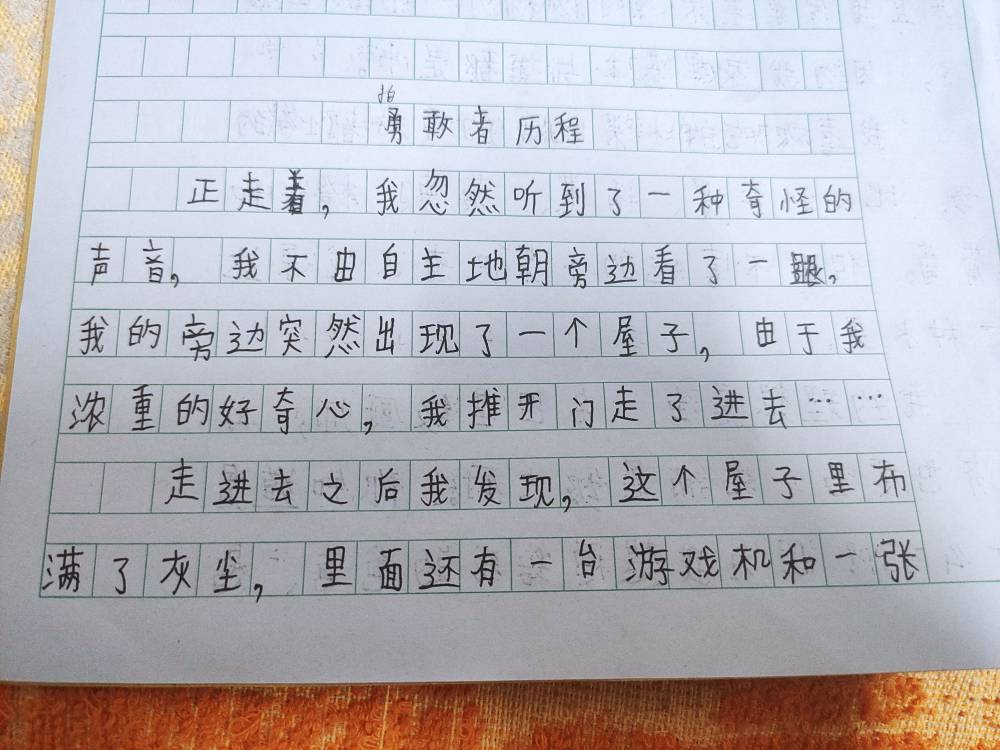 勇敢者历程
正走着，我忽然听到了一种奇怪的
声音，我不由自主地朝旁边看了一眼，
我的旁边突然出现了一个屋子，由于我
浓重的好奇心，我推开门走了进去……
走进去之后我发现，这个屋子里布
满了灰尘，里面还有一台游戏机和一张